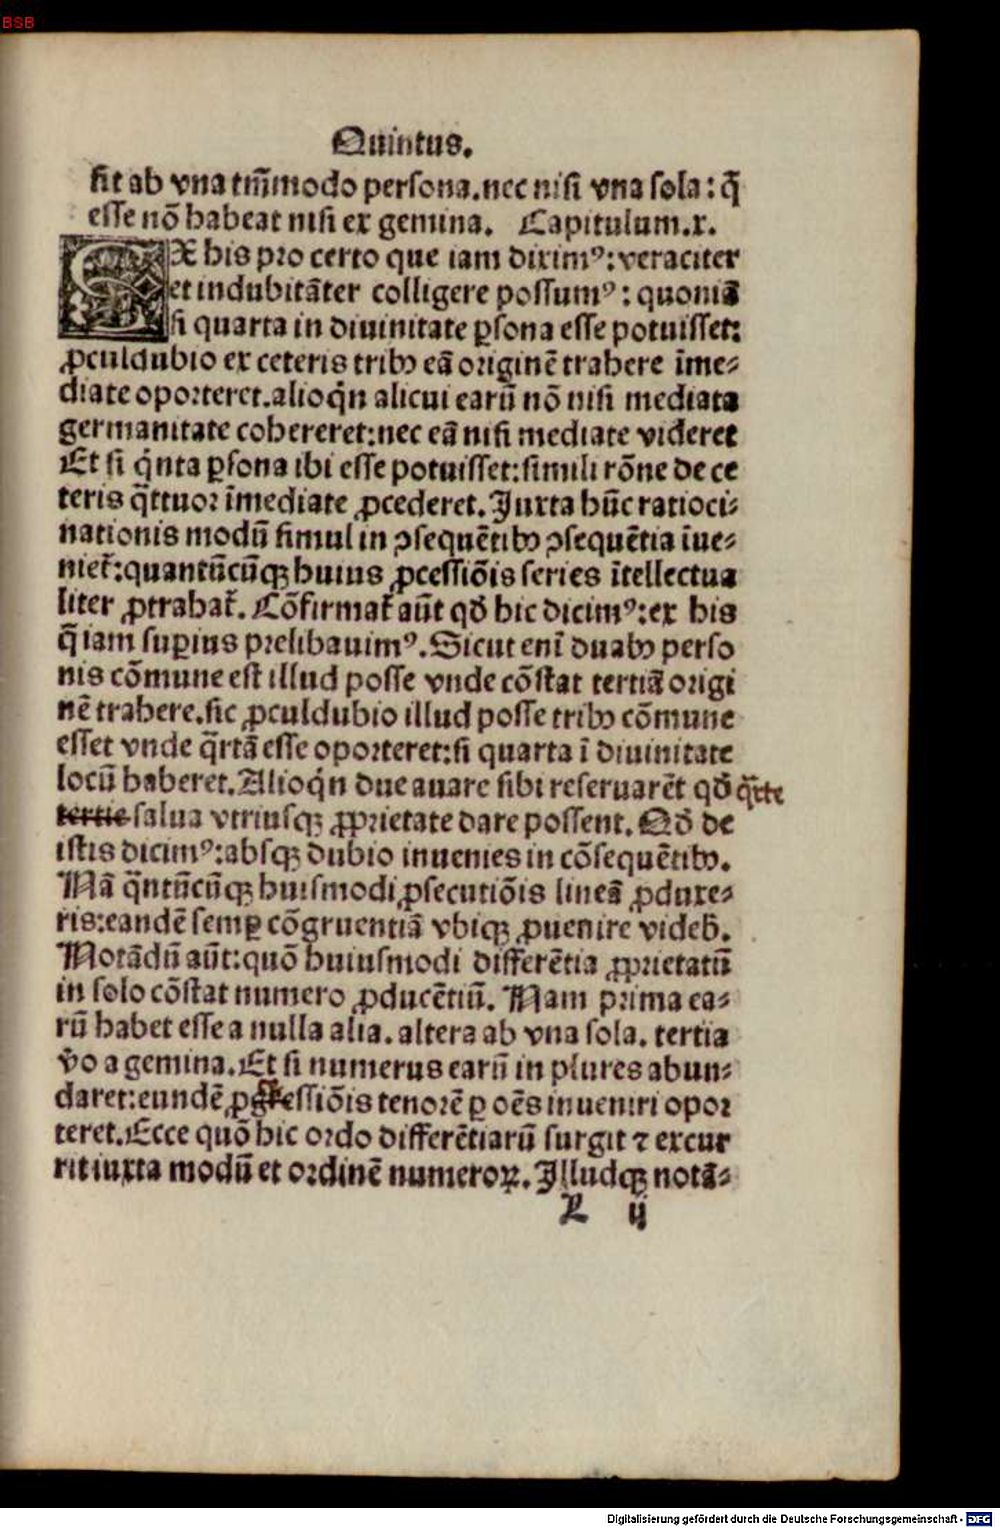 BSB
Quintus.
sit ab vna tm̄modo persona.nec nisi vna sola: q̄
esse nō habeat nisi ex gemina. Capitulum.x.
EX his pro certo que iam diximꝰ:veraciter
et indubitāter colligere possumꝰ: quoniā
si quarta in diuinitate ꝑsona esse potuisset:
ꝓculdubio ex ceteris tribꝰ eā originē trahere īme⸗
diate oporteret.alioq̇n alicui earū nō nisi mediata
germanitate cohereret:nec eā nisi mediate videret
Et si q̇nta ꝑsona ibi esse potuisset:simili rōne de ce
teris q̄ttuor īmediate ꝓcederet.Juxta hūc ratioci⸗
nationis modū simul in ꝯsequētibꝰ ꝯsequētia īue⸗
niet̄:quantūcūqꝫ huius ꝓcessiōis series ītellectua
liter ꝓtrahat̄. Cōfirmat̄ aūt qđ hic dicimꝰ:ex his
q̄ iam suꝑius prelibauimꝰ.Sicut enī duabꝰ perso
nis cōmune est illud posse vnde cōstat tertiā origi
nē trahere.sic ꝓculdubio illud posse tribꝰ cōmune
esset vnde q̄rtā esse oporteret:si quarta ī diuinitate
locū haberet.Alioq̇n due auare sibi reseruarēt qđ q̄rte
tertie salua vtriusqꝫ ꝓprietate dare possent. Qđ de
istis dicimꝰ:absqꝫ dubio inuenies in cōsequētibꝰ.
Nā q̄ntūcūqꝫ huismodi ꝓsecutiōis lineā ꝓduxe⸗
ris:eandē semꝑ cōgruentiā vbiqꝫ ꝓuenire videb̄.
Notādū aūt:quō huiusmodi differētia ꝓprietatū
in solo cōstat numero ꝓducētiū. Nam prima ea⸗
rū habet esse a nulla alia. altera ab vna sola. tertia
v̄o a gemina.Et si numerus earū in plures abun⸗
daret:eundē ꝓgressiōis tenorē ꝑ oēs inueniri opor
teret.Ecce quō hic ordo differētiarū surgit ⁊ excur
rit iuxta modū et ordinē numeroꝝ.Illudqꝫ notā⸗
k ij
Digitalisierung gefördert durch die Deutsche Forschungsgemeinschaft - DFG